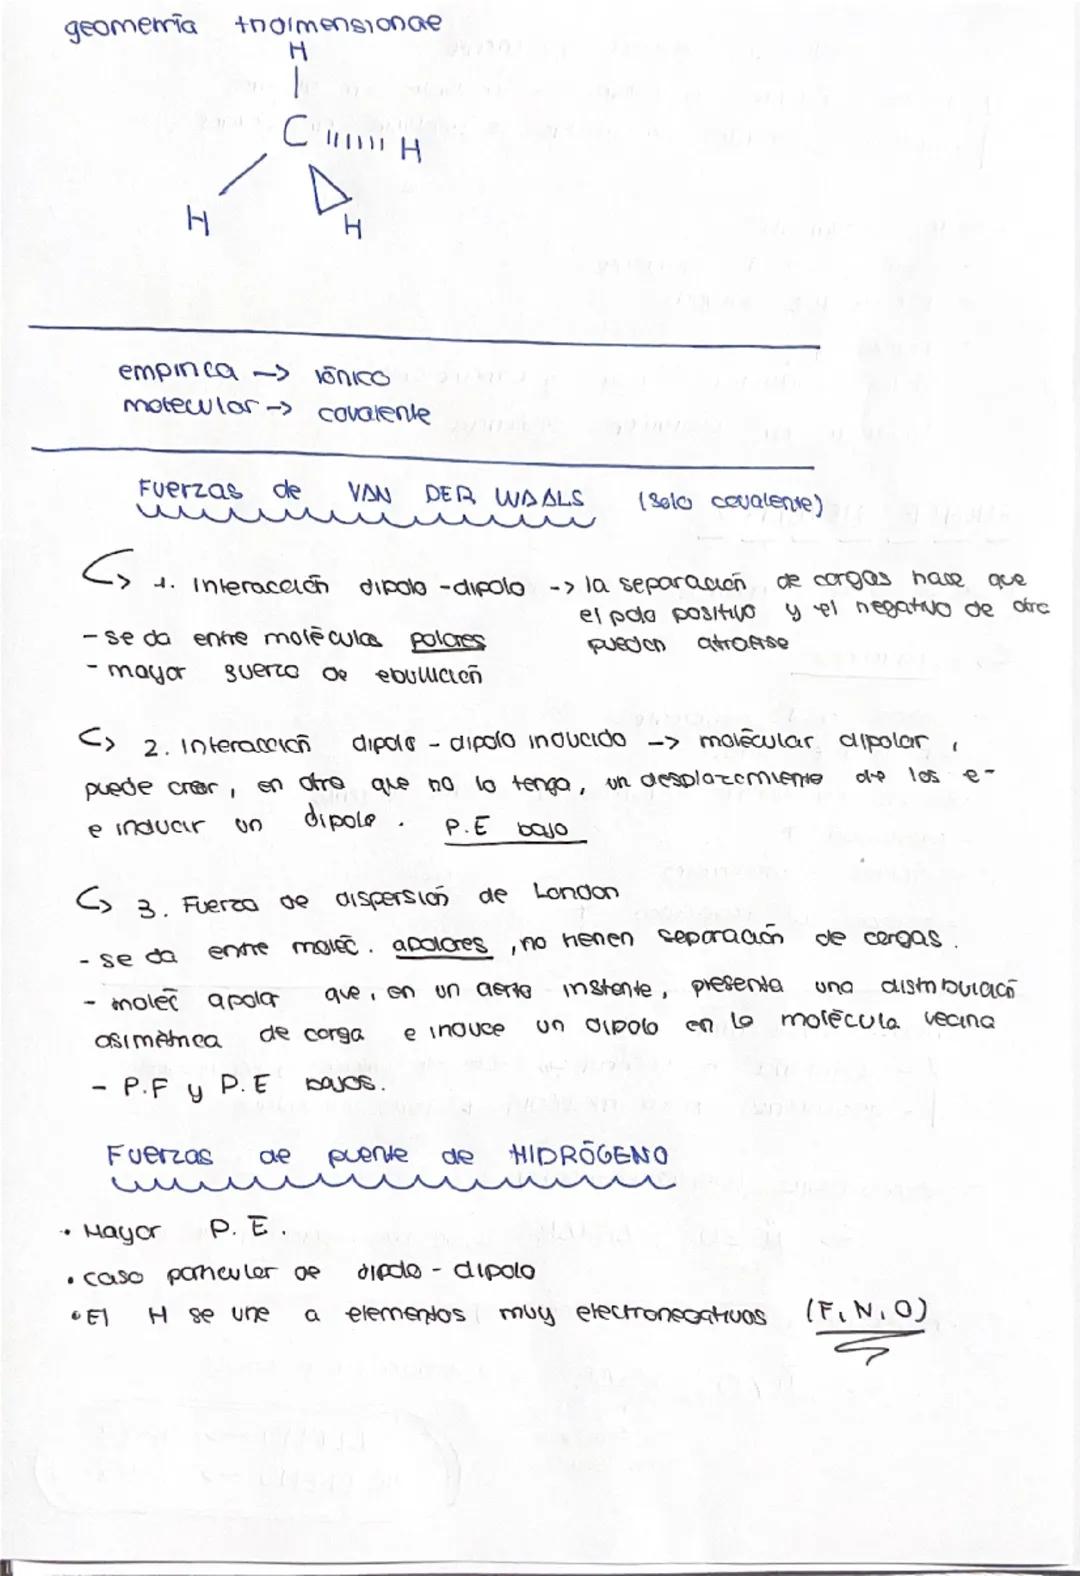 geometría tridimensional
H
C H
H
H
empírica -> iónico
molecular -> covalente
Fuerzas de VAN DER WAALS (Solo covalente)
1. Interacción dipolo - dipolo -> la separación de cargas hace que
el polo positivo y el negativo de otra
- se da entre moléculas polares pueden atraerse
- mayor fuerza de ebullición
2. Interacción dipolo - dipolo inducido -> molécular dipolar,
puede crear, en otra que no lo tenga, un desplazamiento de los e-
e inducir un dipolo. P.E bajo
3. Fuerza de dispersión de London
- se da entre moléc. apolares, no tienen separación de cargas.
- moléc apolar que, en un cierto instante, presenta una distribución
asimétrica de carga e induce un dipolo en la molécula vecina
- P.F y P.E bajos.
Fuerzas de puente de HIDRÓGENO
• Mayor P.E.
• caso particular de dipolo - dipolo
• El H se une a elementos muy electronegativos (F, N, O)